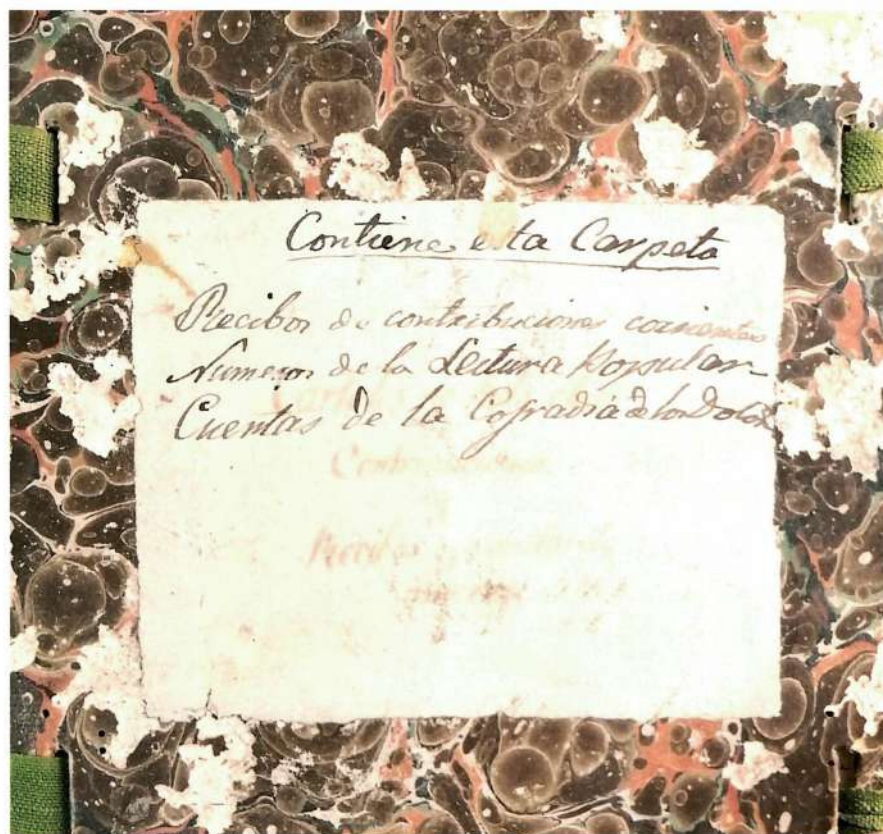 Contiene esta Carpeta
Recibos de contribuciones corrientes
Numeros de la Lectura Popular
Cuentas de la Cofradia de los Dolor